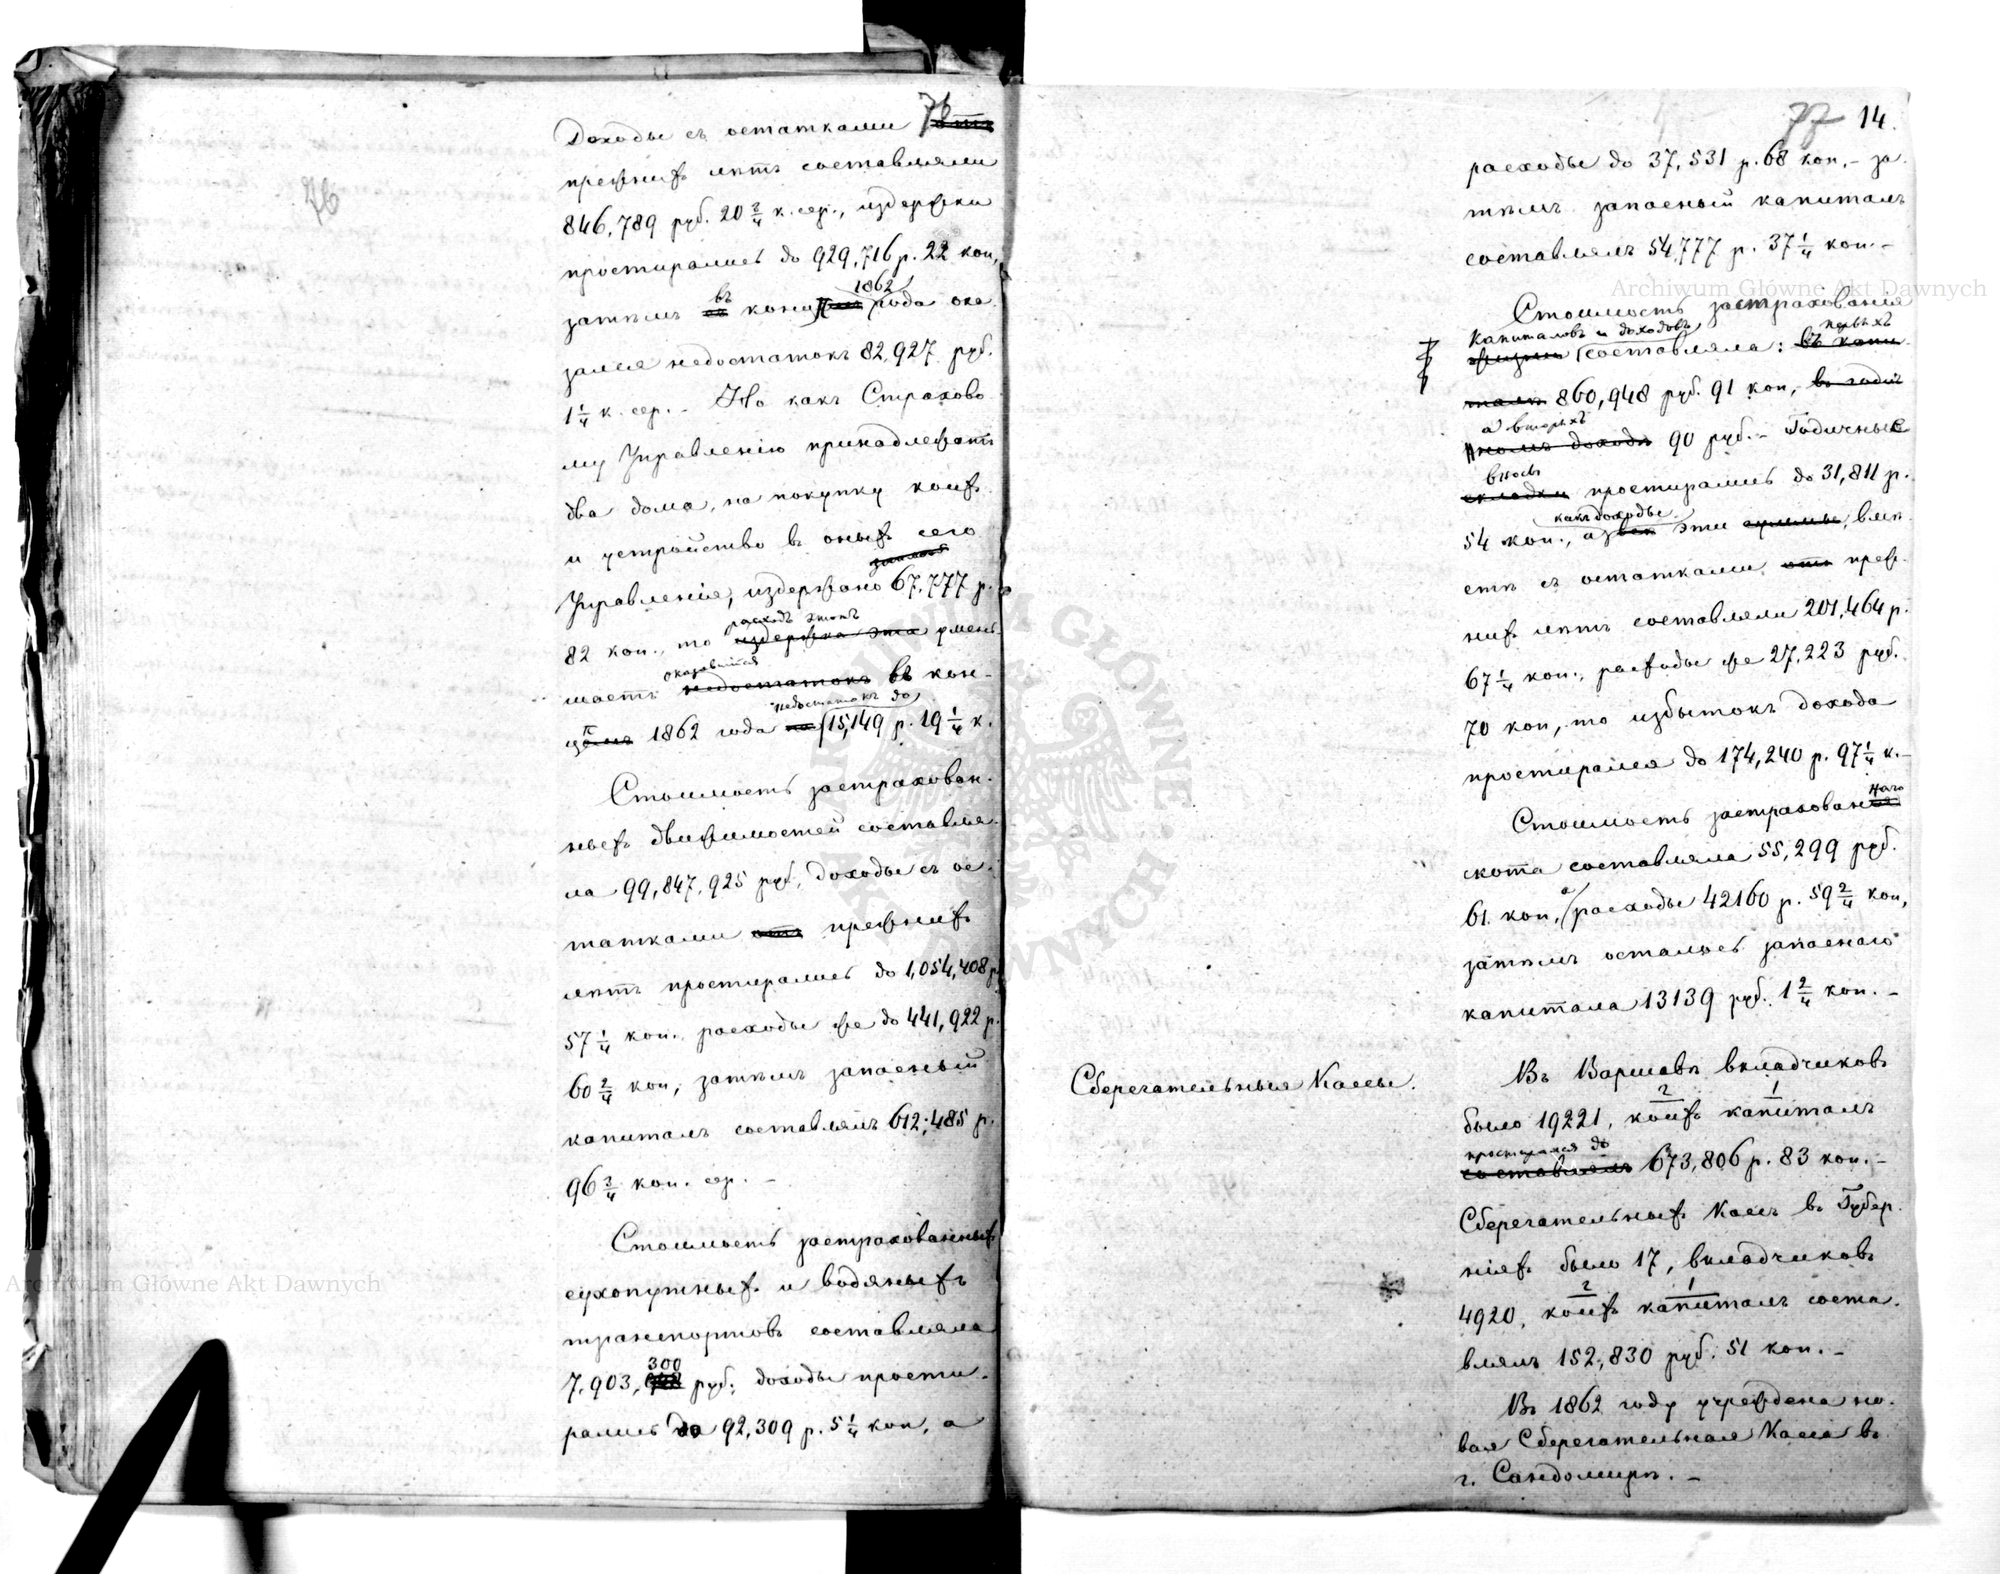 76
76
Доходы съ остатками отъ
прежнихъ лѣтъ составляли
846,789 руб. 20 3/4 к. сер., издержки
простирались до 929,716 р. 22 коп,
1862
затѣмъ въ концѣ года ока
зался недостатокъ 82,927 руб.
1 1/4 к. сер. - Но какъ Страхово
му Управленію принадлежатъ
два дома, на покупку коихъ
и устройство въ оныхъ сего
Управленія, издержано 67,777 р.
расходъ этотъ
82 коп., то издержка эта умень-
оказавшійся
шаетъ недостатокъ въ кон-
недостатокъ до
цѣ 1862 года на 15,149 р. 19 1/4 к.
Стоимость застрахован-
ныхъ движимостей составля-
ла 99,847,925 руб, доходы съ ос-
татками отъ прежнихъ
лѣтъ простирались до 1,054,408 р.
57 1/4 коп. расходы же до 441,922 р.
60 2/4 коп, затѣмъ запасный
капиталъ составлялъ 612,485 р.
96 3/4 коп. сер. -
Стоимость застрахованныхъ
сухопутныхъ и водяныхъ
транспортовъ составляла
300
7,903, руб; доходы прости-
рались до 92,309 р. 5 1/4 коп, а
77 14.
расходы до 37,531 р. 68 коп, - за
тѣмъ запасный капиталъ
составлялъ 54,777 р. 37 1/4 коп. -
Стоимость застрахованія
Капиталовъ и доходовъ первыхъ
жизни составляла: въ капи
талѣ 860,948 руб. 91 коп, въ годич
а вторыхъ
номъ доходѣ 90 руб. - Годичные
вносы
складки простирались до 31,811 р.
какъ доходы
54 коп., а эти суммы, вмѣ
стѣ съ остатками отъ преж-
нихъ лѣтъ составляли 201,464 р.
67 1/4 коп., расходы же 27,223 руб.
70 коп, то избытокъ дохода
простирался до 174,240 р. 97 1/4 к. -
наго
Стоимость застрахован
скота составляла 55,299 руб.
61 коп, а расходы 42160 р. 59 2/4 коп,
затѣмъ осталось запаснаго
капитала 13139 руб. 1 2/4 коп. -
Сберегательныя Кассы.
Въ Варшавѣ вкладчиковъ
2 1
было 19221, коихъ капиталъ
простирался до
составлялъ 673,806 р. 83 коп. -
Сберегательныхъ Кассъ въ Губер-
ніяхъ было 17, вкладчиковъ
2 1
4920, коихъ капиталъ соста-
влялъ 152,830 руб. 51 коп. -
Въ 1862 году учреждена но-
вая Сберегательная Касса въ
г. Сандомирѣ. -
Archiwum Główne Akt Dawnych
Archiwum Główne Akt Dawnych
ARCHIWUM GŁÓWNE AKT DAWNYCH